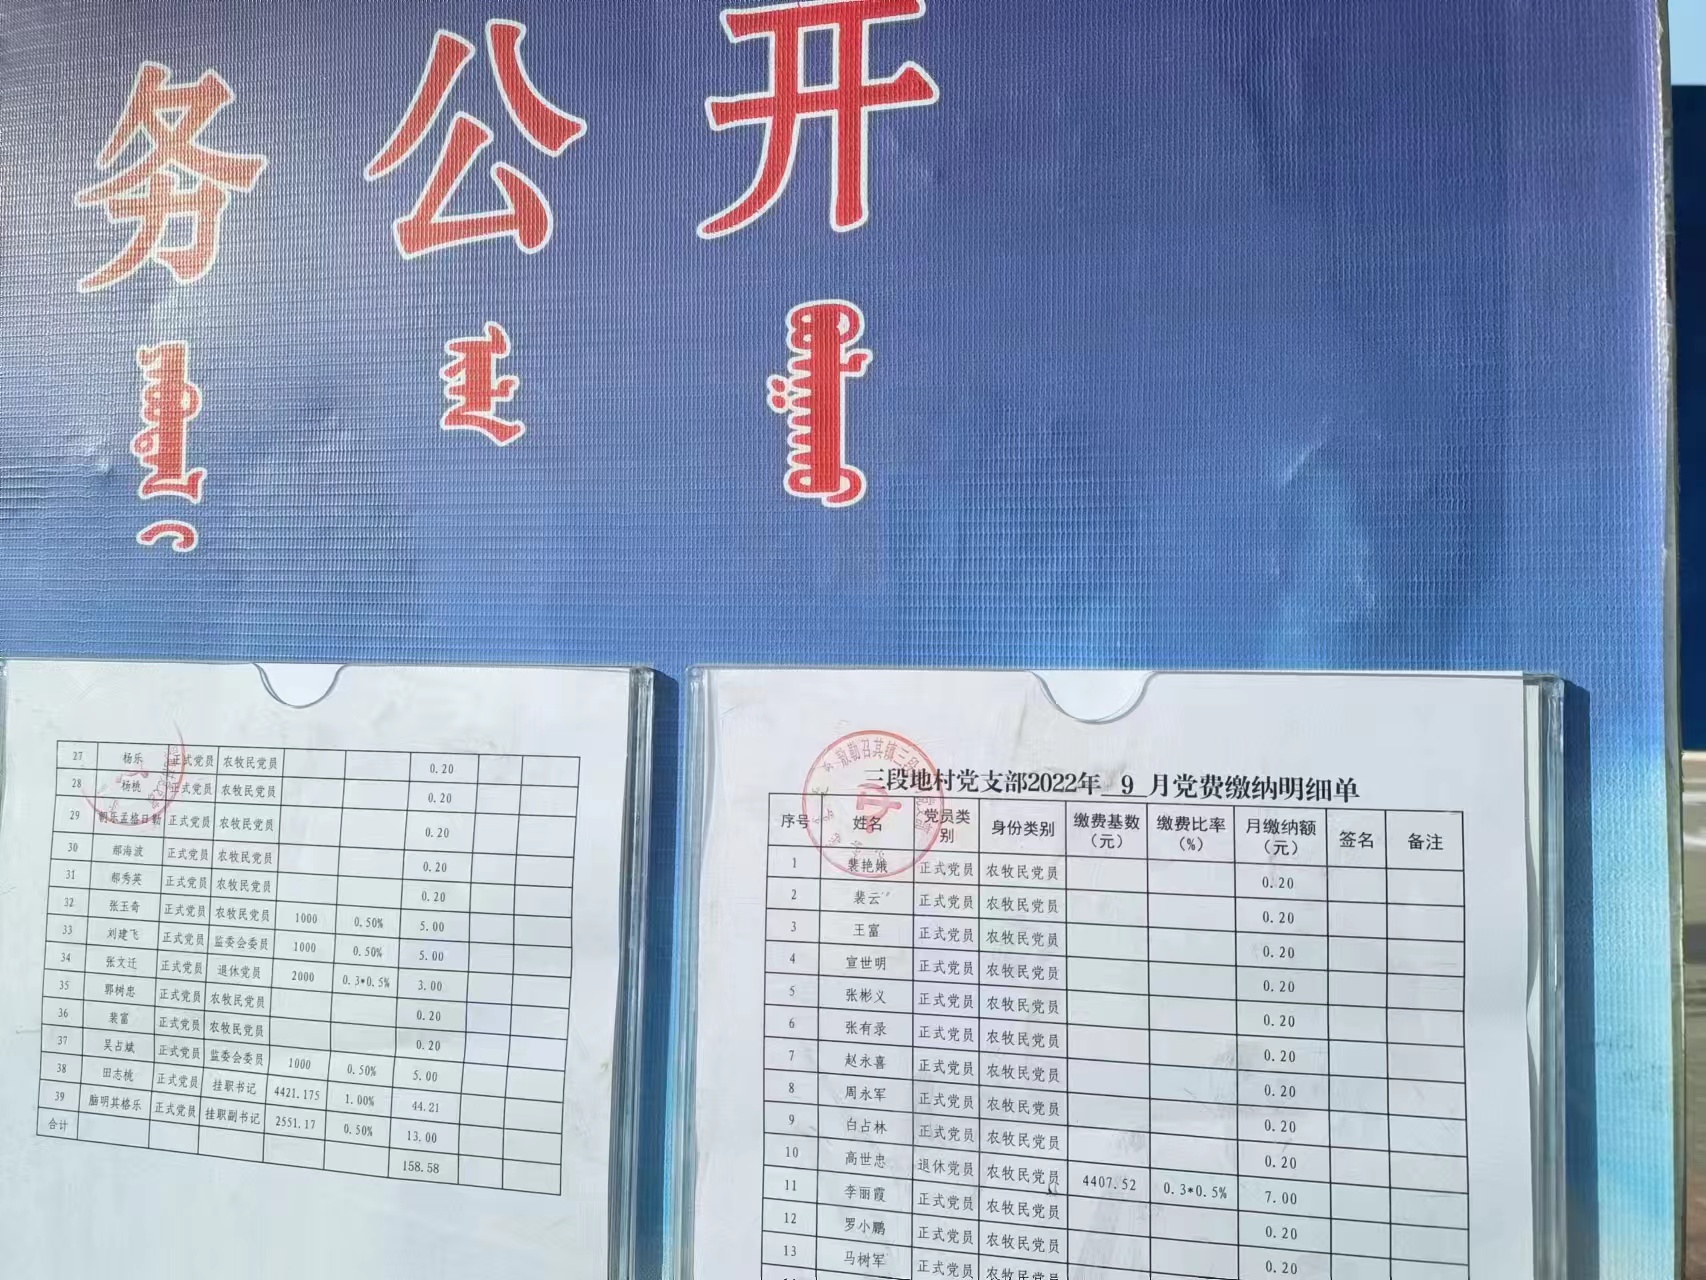 务 公 开
27 杨乐 正式党员 农牧民党员 0.20
28 杨桃 正式党员 农牧民党员 0.20
29 朝乐孟格日勒 正式党员 农牧民党员 0.20
30 郝海波 正式党员 农牧民党员 0.20
31 郝秀英 正式党员 农牧民党员 0.20
32 张玉奇 正式党员 农牧民党员 1000 0.50% 5.00
33 刘建飞 正式党员 监委会委员 1000 0.50% 5.00
34 张文迁 正式党员 退休党员 2000 0.3*0.5% 3.00
35 郭树忠 正式党员 农牧民党员 0.20
36 裴富 正式党员 农牧民党员 0.20
37 吴占斌 正式党员 监委会委员 1000 0.50% 5.00
38 田志桃 正式党员 挂职书记 4421.175 1.00% 44.21
39 脑明其格乐 正式党员 挂职副书记 2551.17 0.50% 13.00
合计 158.58
敖勒召其镇三段
三段地村党支部2022年_9_月党费缴纳明细单
序号 姓名 党员类别 身份类别 缴费基数（元） 缴费比率（%） 月缴纳额（元） 签名 备注
1 裴艳娥 正式党员 农牧民党员 0.20
2 裴云 正式党员 农牧民党员 0.20
3 王富 正式党员 农牧民党员 0.20
4 宣世明 正式党员 农牧民党员 0.20
5 张彬义 正式党员 农牧民党员 0.20
6 张有录 正式党员 农牧民党员 0.20
7 赵永喜 正式党员 农牧民党员 0.20
8 周永军 正式党员 农牧民党员 0.20
9 白占林 正式党员 农牧民党员 0.20
10 高世忠 退休党员 农牧民党员 4407.52 0.3*0.5% 7.00
11 李丽霞 正式党员 农牧民党员 0.20
12 罗小鹏 正式党员 农牧民党员 0.20
13 马树军 正式党员 农牧民党员